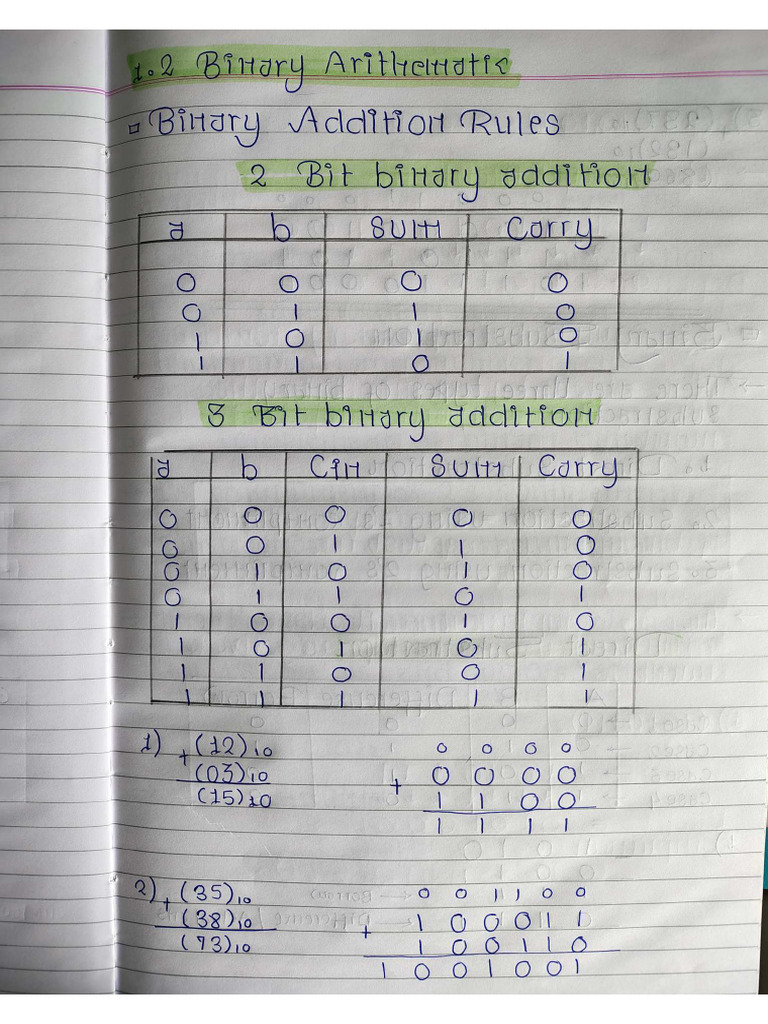 1.2 Binary Arithematic
Binary Addition Rules
2 Bit binary addition
a b SUM Carry
0 0 0 0
0 1 1 0
1 0 1 0
1 1 0 1
3 Bit binary addition
a b Cin SUM Carry
0 0 0 0 0
0 0 1 1 0
0 1 0 1 0
0 1 1 0 1
1 0 0 1 0
1 0 1 0 1
1 1 0 0 1
1 1 1 1 1
1) (12)10 0 0 0 0
+ (03)10 + 0 0 0 0
(15)10 1 1 0 0
1 1 1 1
2) + (35)10 0 0 1 1 0 0
(38)10 + 1 0 0 0 1 1
(73)10 1 0 0 1 1 0
1 0 0 1 0 0 1